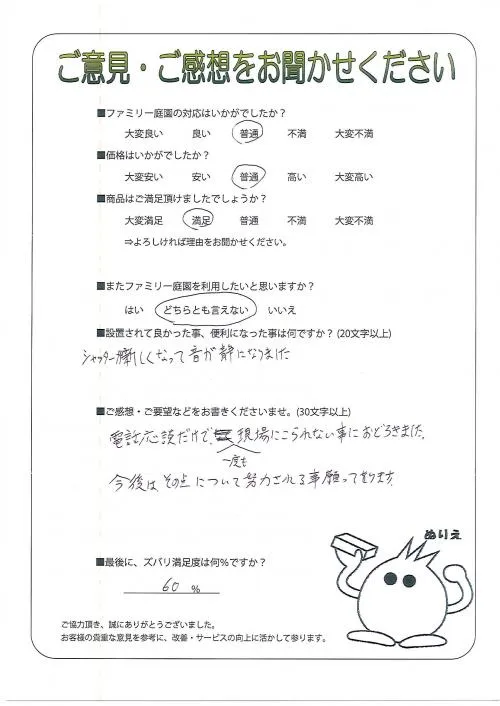 ご意見・ご感想をお聞かせください
■ファミリー庭園の対応はいかがでしたか?
大変良い 良い 普通 不満 大変不満
■価格はいかがでしたか?
大変安い 安い 普通 高い 大変高い
■商品はご満足頂けましたでしょうか?
大変満足 満足 普通 不満 大変不満
⇒よろしければ理由をお聞かせください。
■またファミリー庭園を利用したいと思いますか?
はい どちらとも言えない いいえ
■設置されて良かった事、便利になった事は何ですか?(20文字以上)
シャッターが新しくなって音が静になりました
■ご感想・ご要望などをお書きくださいませ。(30文字以上)
電話応談だけで、現場にこられない事におどろきました。
一度も
今後はその点について努力される事願っております
ぬりえ
■最後に、ズバリ満足度は何%ですか?
60 %
ご協力頂き、誠にありがとうございました。
お客様の貴重な意見を参考に、改善・サービスの向上に活かして参ります。